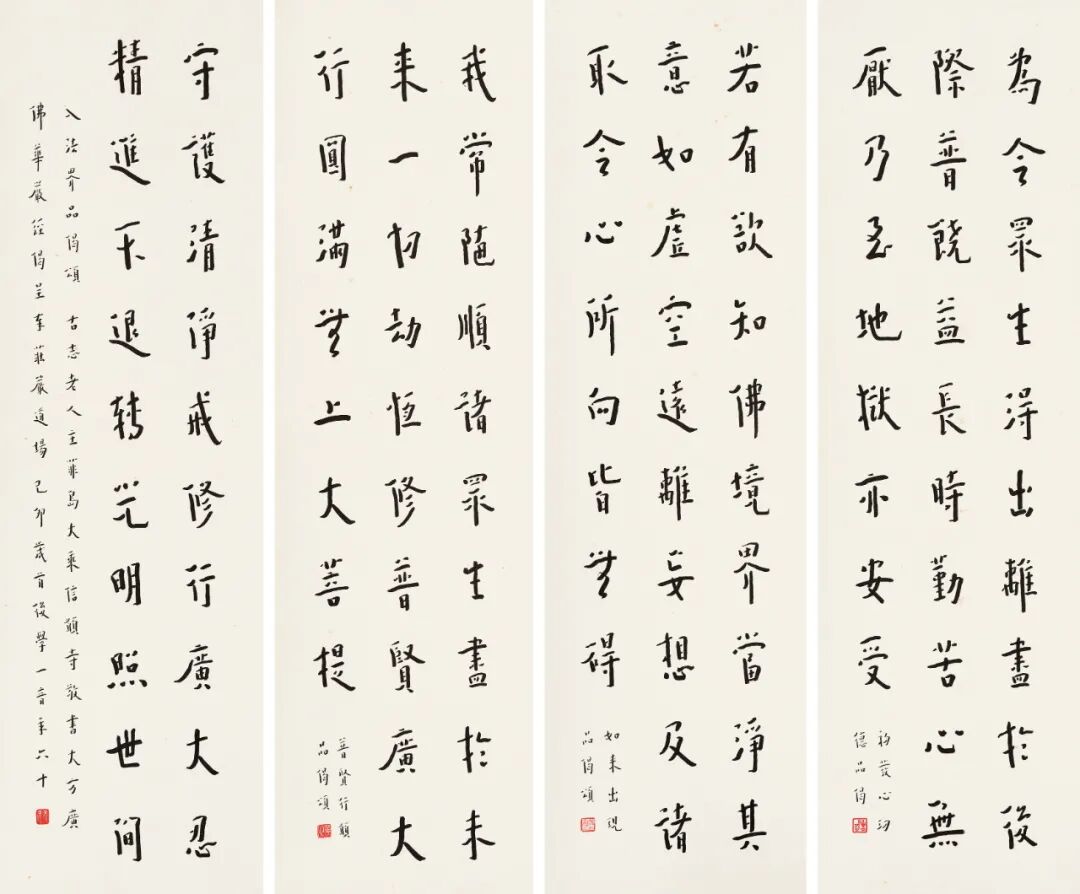 為令眾生得出離盡於後
際普饒益長時勤苦心無
厭乃至地獄亦安受
初發心功
德品偈
若有欲知佛境界當淨其
意如虛空遠離妄想及諸
取令心所向皆無碍
如来出現
品偈頌
我常隨順諸眾生盡於未
来一切劫恒修普賢廣大
行圓滿無上大菩提
普賢行願
品偈頌
守護清淨戒修行廣大忍
精進不退轉光明照世間
入法界品偈頌 古志老人主菲島大乘信願寺敬書大方廣
佛華嚴經偈呈奉莊嚴道場 己卯歲首後學一音年六十